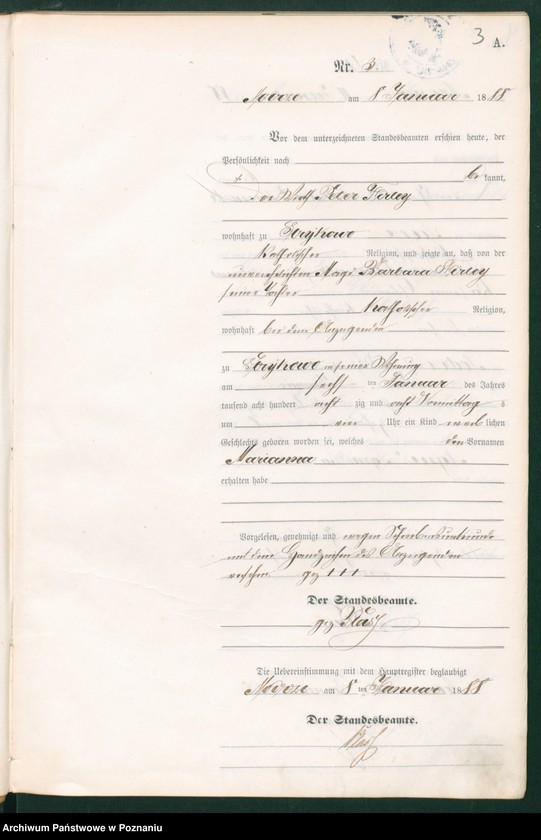 3 A.
Nr. 3
am 8 Januar 1888
Vor dem unterzeichneten Standesbeamten erschien heute, der
Persönlichkeit nach
be kannt,
der Wirth Peter
wohnhaft zu
katholischer Religion, und zeigte an, daß von der
unverehelichten Magd Barbara
seiner Tochter
katholischer Religion,
wohnhaft bei dem Anzeigenden
zu in seiner Wohnung
am sechs ten Januar des Jahres
tausend acht hundert acht zig und acht Vormittags
um vier Uhr ein Kind weib lichen
Geschlechts geboren worden sei, welches den Vornamen
Marianna
erhalten habe
Vorgelesen, genehmigt und wegen Schreibensunkunde
mit dem Handzeichen des Anzeigenden
versehen. gez +++
Der Standesbeamte.
gez
Die Uebereinstimmung mit dem Hauptregister beglaubigt
am 8 ten Januar 1888
Der Standesbeamte.
Archiwum Państwowe w Poznaniu